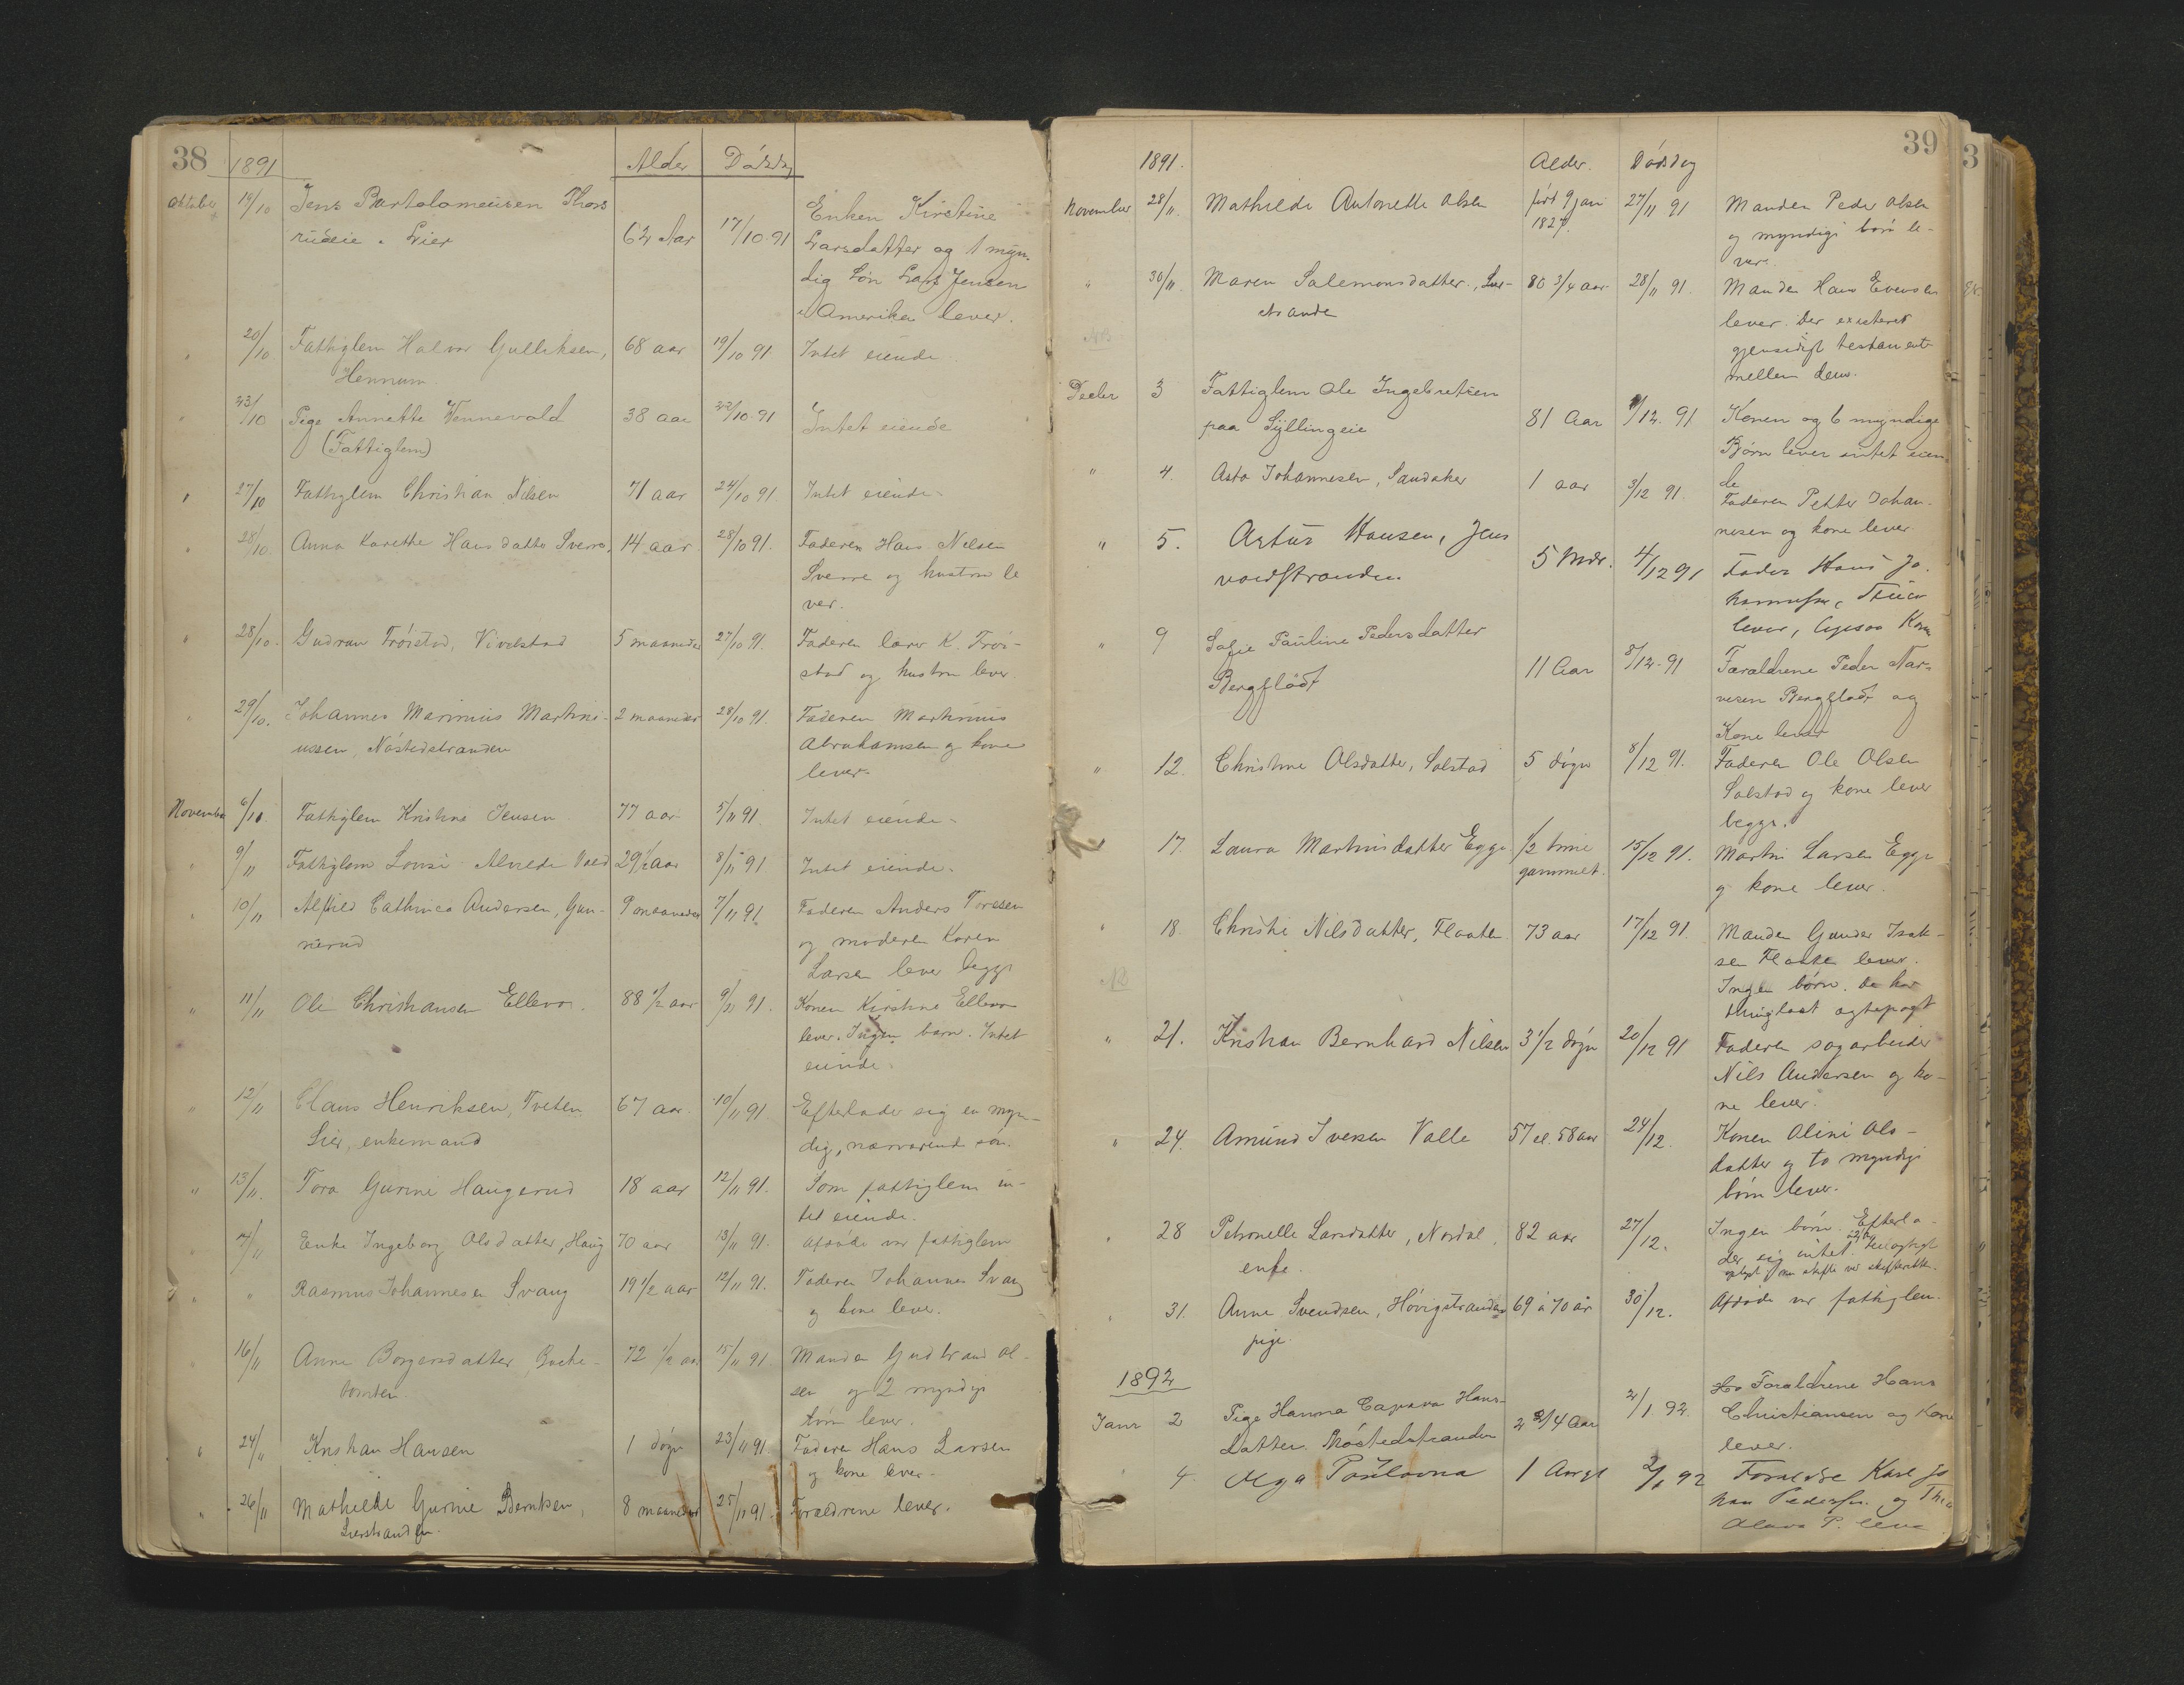 38
1891
Alder Dödsdag
Oktober 19/10 Jens Bartolomeüsen Thors
rüdeie i Lier 62 Aar 17/10.91
Enken Kirstine
Larsdatter og 1 myn-
dig Sön Lars Jensen
i Amerika lever.
" 20/10 Fattiglem Halvor Gulliksen, 68 aar 19/10 91 Intet eiende
Hennum.
" 23/10 Pige Annette Wennevold 38 aar 22/10.91 Intet eiende
(Fattiglem)
" 27/10 Fattiglem Christian Nilsen 71 aar 24/10 91 Intet eiende.
" 28/10. Anna Karethe Hansdatter Sverre, 14 aar. 28/10 91. Faderen Hans Nilsen
Sverre og hustru le
ver.
" 28/10. Gudrun Tröistad, Vivelstad 5 maaneder 27/10 91. Faderen K. Tröi-
stad og hustru lever
" 29/10. Johannes Marinius Martini- 2 maaneder 28/10 91. Faderen Martinius
ussen, Nöstedstranden Abrahamsen og kone
lever.
November 6/11 Fattiglem Kristine Jensen 77 aar 5/11 91 Intet eiende.
" 9/11 Fattiglem Lovise Alvilde 29 1/2 aar 8/11 91 Intet eiende.
" 10/11 Alfhild Cathinca Andersen, Gun- 9 maaneder 7/11 91 Faderen Anders Toresen
nerud og moderen Karen
Larsen lever begge
" 11/11 Ole Christiansen Ellevor. 88 1/2 aar 9/11 91. Konen Kirstine Ellevor
lever. Ingen barn. Intet
eiende.
" 12/11 Claus Henriksen, Tveten 67 aar. 10/11 91. Efterlader sig en myn-
Lier, enkemand dig, nærværende søn.
" 13/11. Tora Gurine Haugerud 18 aar 12/11 91. Som fattiglem in-
tet eiende.
" 14/11 Enke Ingeborg Olsdatter, Haug 70 aar 13/11 91. Afdöde var fattiglem
" " Rasmus Johannesen Svang 19 1/2 aar 12/11 91. Faderen Johannes Svang
og kone lever.
" 16/11 Anne Borgersdatter, 72 1/2 aar 15/11 91. Manden Gudbrand Ol-
tomten. sen og 2 myndige
börn lever.
" 24/11 Kristian Hansen 1 dögn 23/11 91. Faderen Hans Larsen
og kone lever.
" 26/11 Mathilde Gurine Berntsen, 8 maaneder 25/11 91. Forældrene lever.
Lierstranden.
39
1891.
Alder. Dödsdag
November 28/11. Mathilde Antonette Olsen född 9 jan 27/11 91 Manden Peder Olsen
1827. og myndige börn le-
ver.
" 30/11 Maren Salemonsdatter, Lier- 80 3/4 aar 28/11 91. Manden Hans Evensen
strande lever. Der existerer
NB gjensidigt testament
mellem dem.
Decbr 3 Fattiglem Ole Ingebretsen
paa Syllingeie 81 Aar 1/12. 91 Konen og 6 myndige
Børn lever intet eien
de
" 4. Asta Johannesen, Sandaker 1 aar 3/12 91. Faderen Petter Johan-
nesen og kone lever.
" 5. Artur Hansen, Jens
voldstranden. 5 Mdr. 4/12 91 Fader Hans Jo
hannessen,
lever, ligesaa Kone
" 9 Sofie Pauline Pedersdatter
Bergflödt 11 Aar 8/12-91 Forældrene Peder Nar-
vesen Bergflødt og
Kone lever
" 12. Christine Olsdatter, Solstad 5 dögn 8/12 91. Faderen Ole Olsen
Solstad og kone lever
begge.
17. Laura Martinsdatter Egge 1/2 time 15/12 91. Martin Larsen Egge
gammel. og kone lever.
" 18. Christi Nilsdatter, Flaaten 73 aar 17/12 91 Manden Gunder Isak-
sen Flaaten lever.
Ingen børn. De har
NB thinglæst ægtepagt
" 21. Kristian Bernhard Nilsen 3 1/2 dögn 20/12 91 Faderen sagarbeider
Nils Andersen og ko-
ne lever.
" 24. Amund Iversen Valle 57 el. 58 aar 24/12. Konen Olini Ols-
datter og to myndige
börn lever.
" 28 Petronelle Larsdatter, Nordal, 82 aar 27/12. Ingen börn. Efterla-
enke. der sig intet.
" 31. Anne Svendsen, Hövigstranden 69 à 70 år 30/12. Afdöde var fattiglem.
pige.
1892
Janr 2 Pige Hanna Hans-
datter. Nöstedstranden 2 3/4 Aar 2/1. 92. Forældrene Hans
Christiansen og Kone
lever.
" 4. Olga 1 Aar 2/1 92 Forældre Karl Jo
han Pedersen og Thea
Olava P. leve